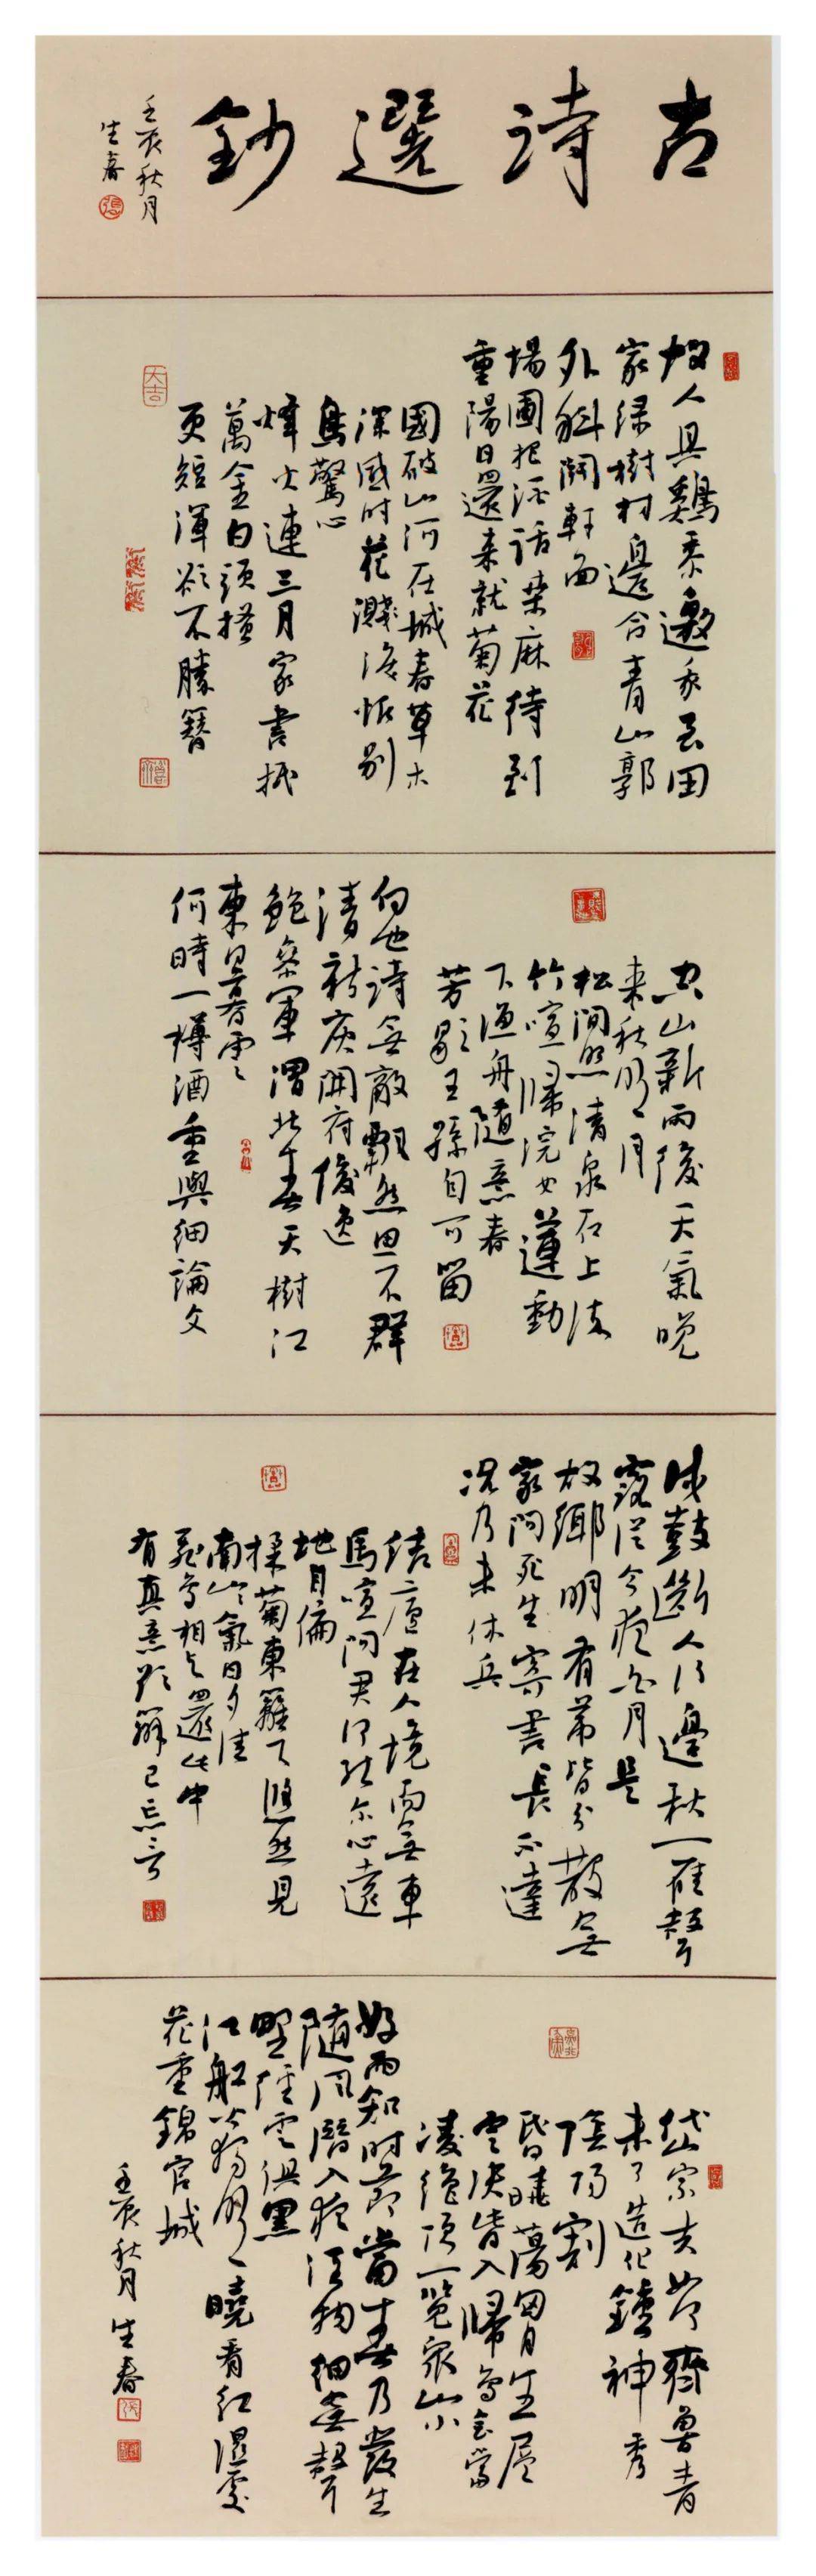 古詩選鈔
壬辰秋月
生春
故人具鷄黍邀我至田
家綠樹村邊合青山郭
外斜開軒面
場圃把酒話桑麻待到
重陽日還来就菊花
國破山河在城春草木
深感时花濺淚恨別
鳥驚心
烽火連三月家書抵
萬金白頭搔
更短渾欲不勝簪
空山新雨後天氣晚
来秋明月
松間照清泉石上流
竹喧歸浣女蓮動
下漁舟隨意春
芳歇王孫自可留
白也詩無敵飄然思不群
清新庾開府俊逸
鮑參軍渭北春天樹江
東日暮雲
何時一樽酒重與细論文
戍鼓斷人行邊秋一雁聲
露從今夜白月是
故鄉明有弟皆分散無
家问死生寄書長不達
况乃未休兵
结廬在人境而無車
馬喧问君何能尔心遠
地自偏
採菊東籬下悠然見
南山山氣日夕佳
飛鳥相與還此中
有真意欲辨已忘言
岱宗夫如何齊魯青
未了造化鍾神秀
陰陽割
昏曉蕩胸生层
雲决眥入歸鳥會當
凌绝頂一覽众山小
好雨知时節當春乃發生
随风潛入夜润物细無聲
野徑雲俱黑
江船火獨明曉看红濕處
花重錦官城
壬辰秋月生春